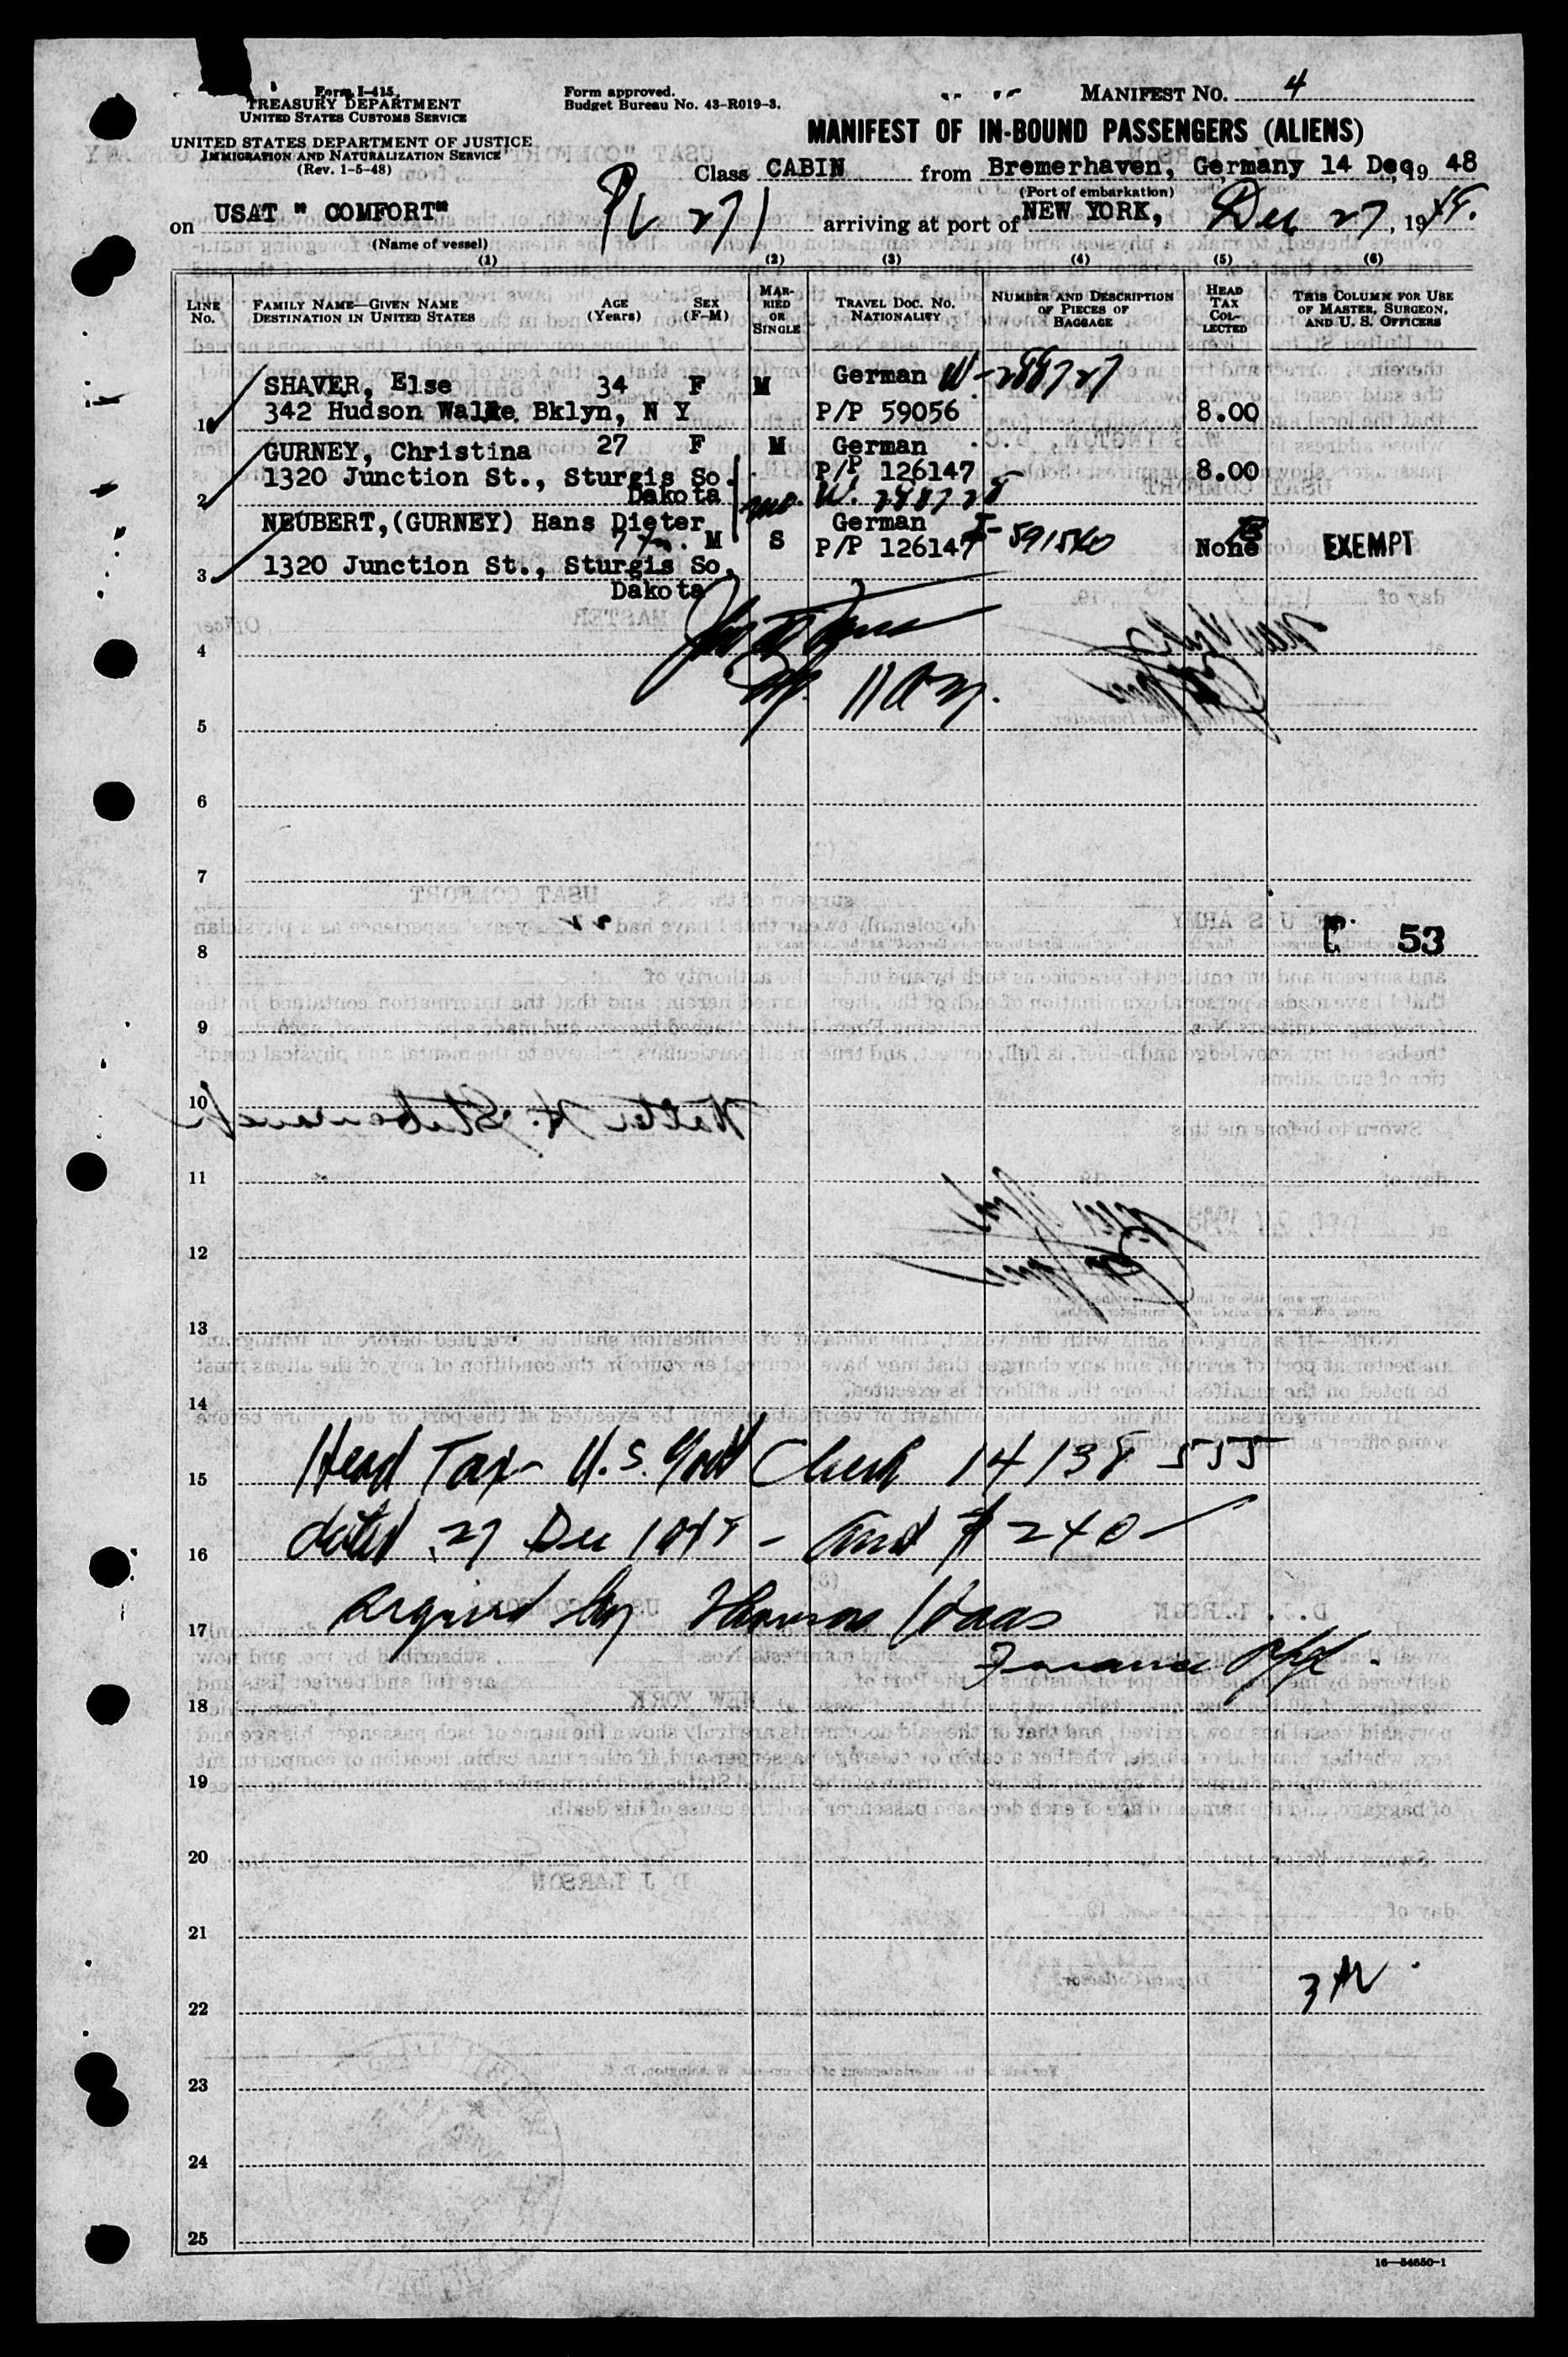 Form I-415
TREASURY DEPARTMENT
UNITED STATES CUSTOMS SERVICE
UNITED STATES DEPARTMENT OF JUSTICE
IMMIGRATION AND NATURALIZATION SERVICE
(Rev. 1-5-48)
Form approved.
Budget Bureau No. 43-R019-3.
MANIFEST NO. 4
MANIFEST OF IN-BOUND PASSENGERS (ALIENS)
Class CABIN from Bremerhaven, Germany 14 Dec 19 48
(Port of embarkation)
on USAT " COMFORT" 271 arriving at port of NEW YORK, Dec 27, 1948.
(Name of vessel)
(1) (2) (3) (4) (5) (6)
LINE No. FAMILY NAME—GIVEN NAME DESTINATION IN UNITED STATES AGE (Years) SEX (F-M) MARRIED OR SINGLE TRAVEL DOC. NO. NATIONALITY NUMBER AND DESCRIPTION OF PIECES OF BAGGAGE HEAD TAX COLLECTED THIS COLUMN FOR USE OF MASTER, SURGEON, AND U. S. OFFICERS
SHAVER, Else 34 F M German W-288727
1 342 Hudson Bklyn, N Y P/P 59056 8.00
GURNEY, Christina 27 F M German
1320 Junction St., Sturgis So. P/P 126147 8.00
2 Dakota W. 288728
NEUBERT,(GURNEY) Hans Dieter German
7 M S P/P 126147 I-591540 None EXEMPT
3 1320 Junction St., Sturgis So,
Dakota
4
5
6
7
8 53
9
10
11
12
13
14
15 Head Tax - U.S. Govt Check 14138555
16 dated 27 Dec 1948 - amt $ 240
17 signed by Thomas Haas
Finance Off.
18
19
20
21
3
22
23
24
25
16—54650-1